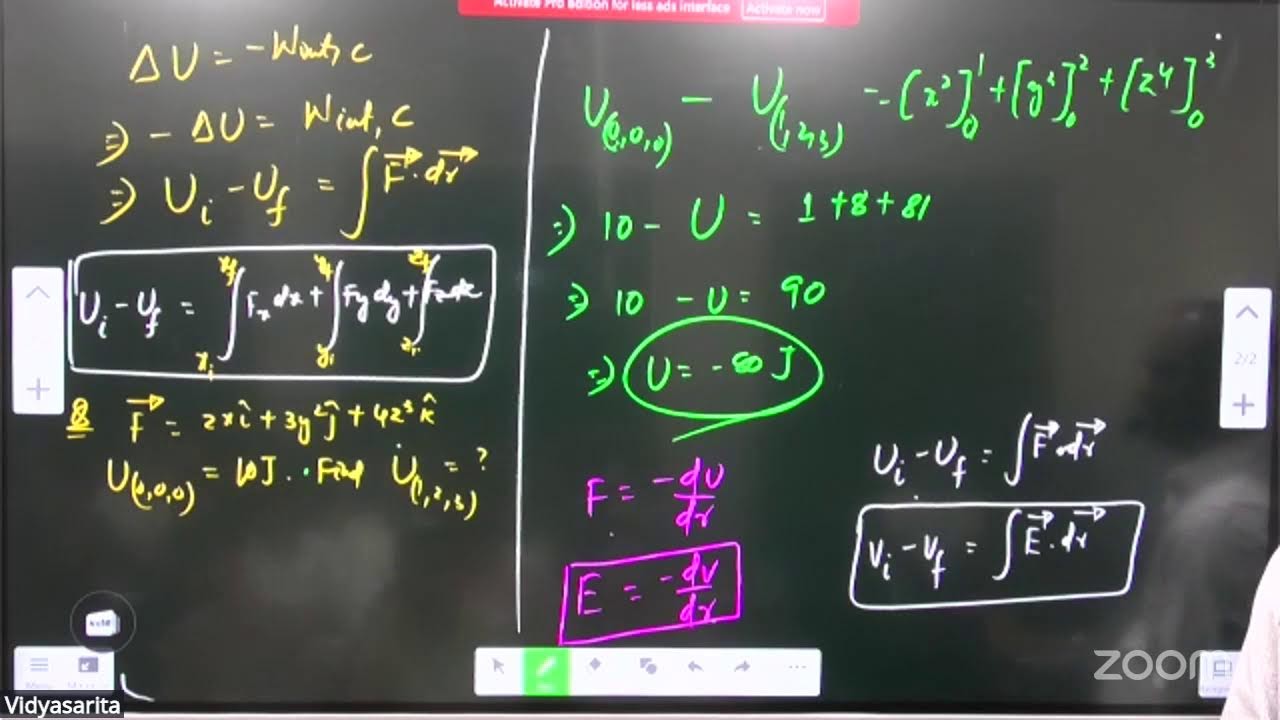 Activate Pro edition for less ads interface Activate now
ΔU = -Wint, c
⇒ -ΔU = Wint, C
⇒ U_i - U_f = ∫F⃗·dr⃗
U_i - U_f = ∫_{x_i}^{x_f} F_x dx + ∫_{y_i}^{y_f} F_y dy + ∫_{z_i}^{z_f} F_z dz
8 F⃗ = 2xî + 3y²ĵ + 4z³k̂
U_(0,0,0) = 10J. Find U_(1,2,3) = ?
U_(0,0,0) - U_(1,2,3) = [x²]_0^1 + [y³]_0^2 + [z⁴]_0^3
⇒ 10 - U = 1 + 8 + 81
⇒ 10 - U = 90
⇒ U = -80 J
F = -dU/dr
E = -dv/dr
U_i - U_f = ∫F⃗·dr⃗
V_i - V_f = ∫E⃗·dr⃗
2/2
Menu
zoom
Vidyasarita